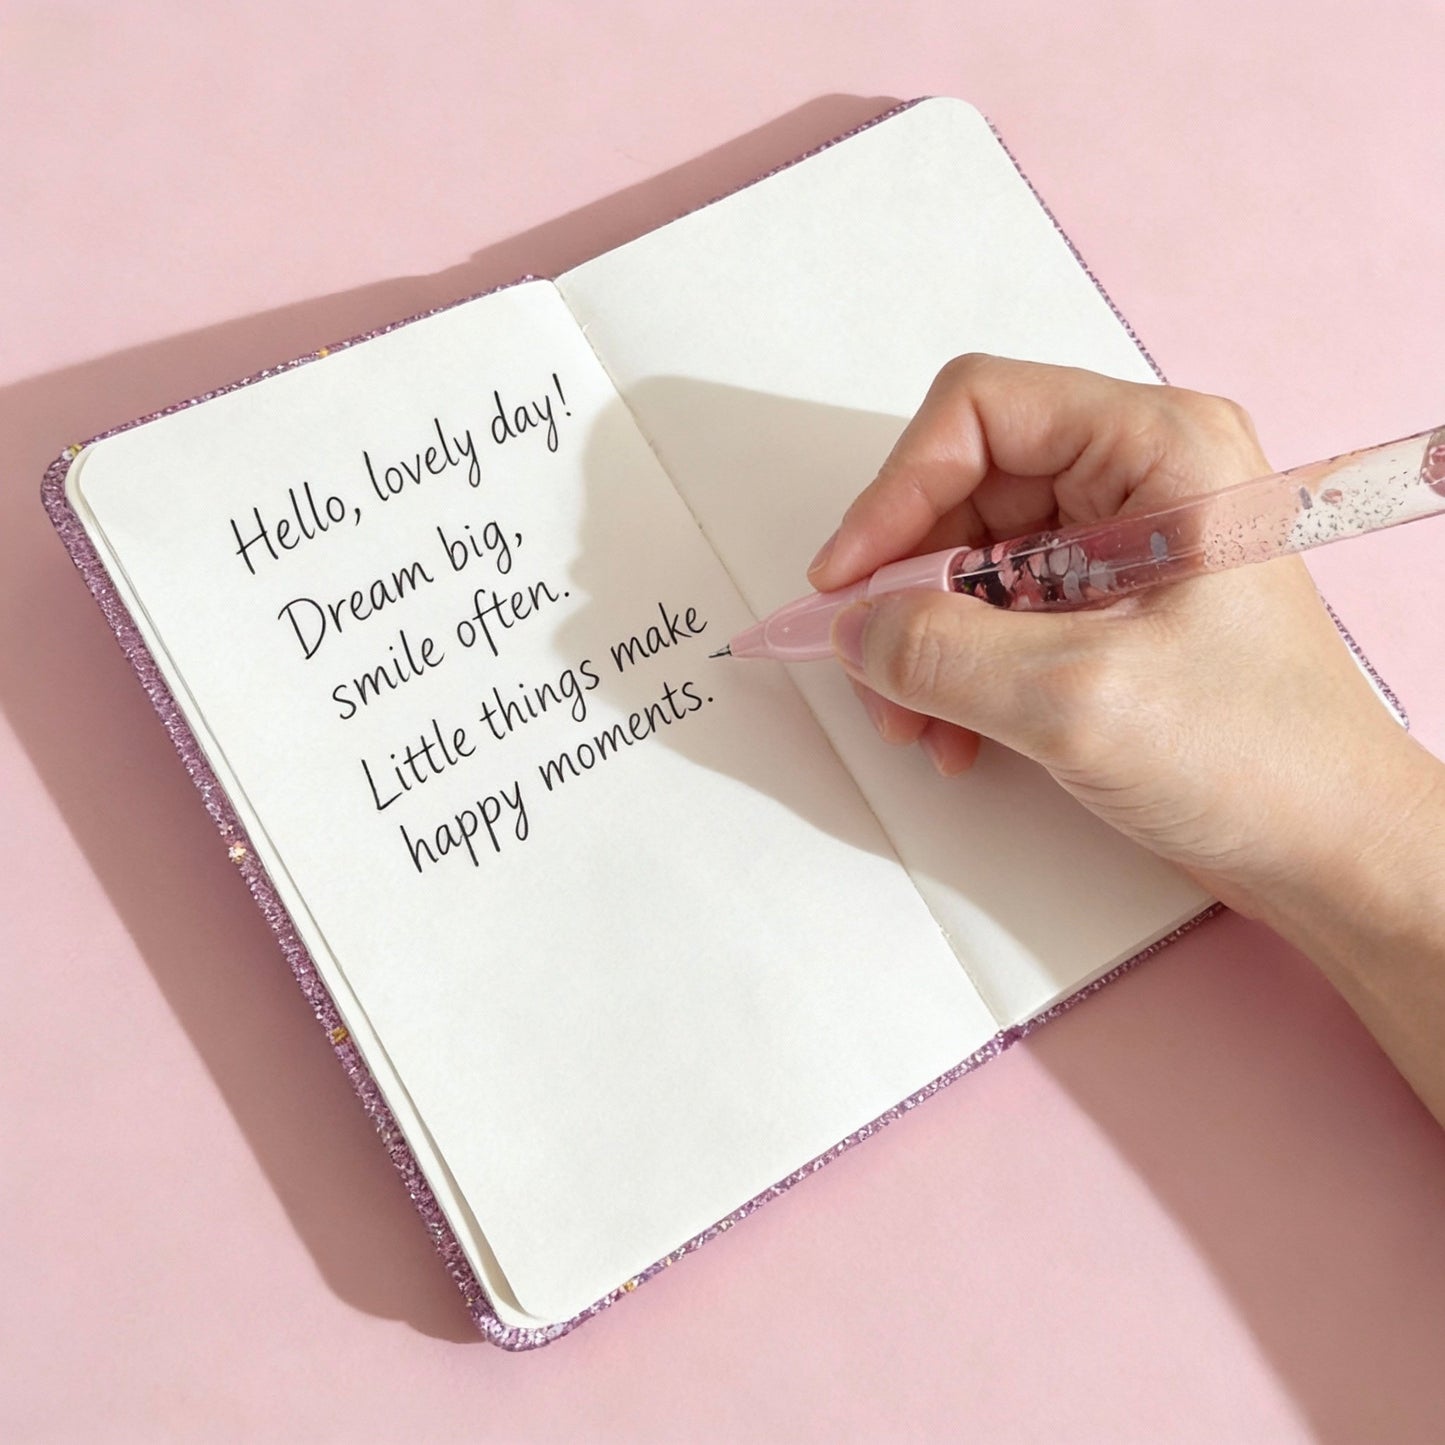 Hello, lovely day!
Dream big,
smile often.
Little things make
happy moments.